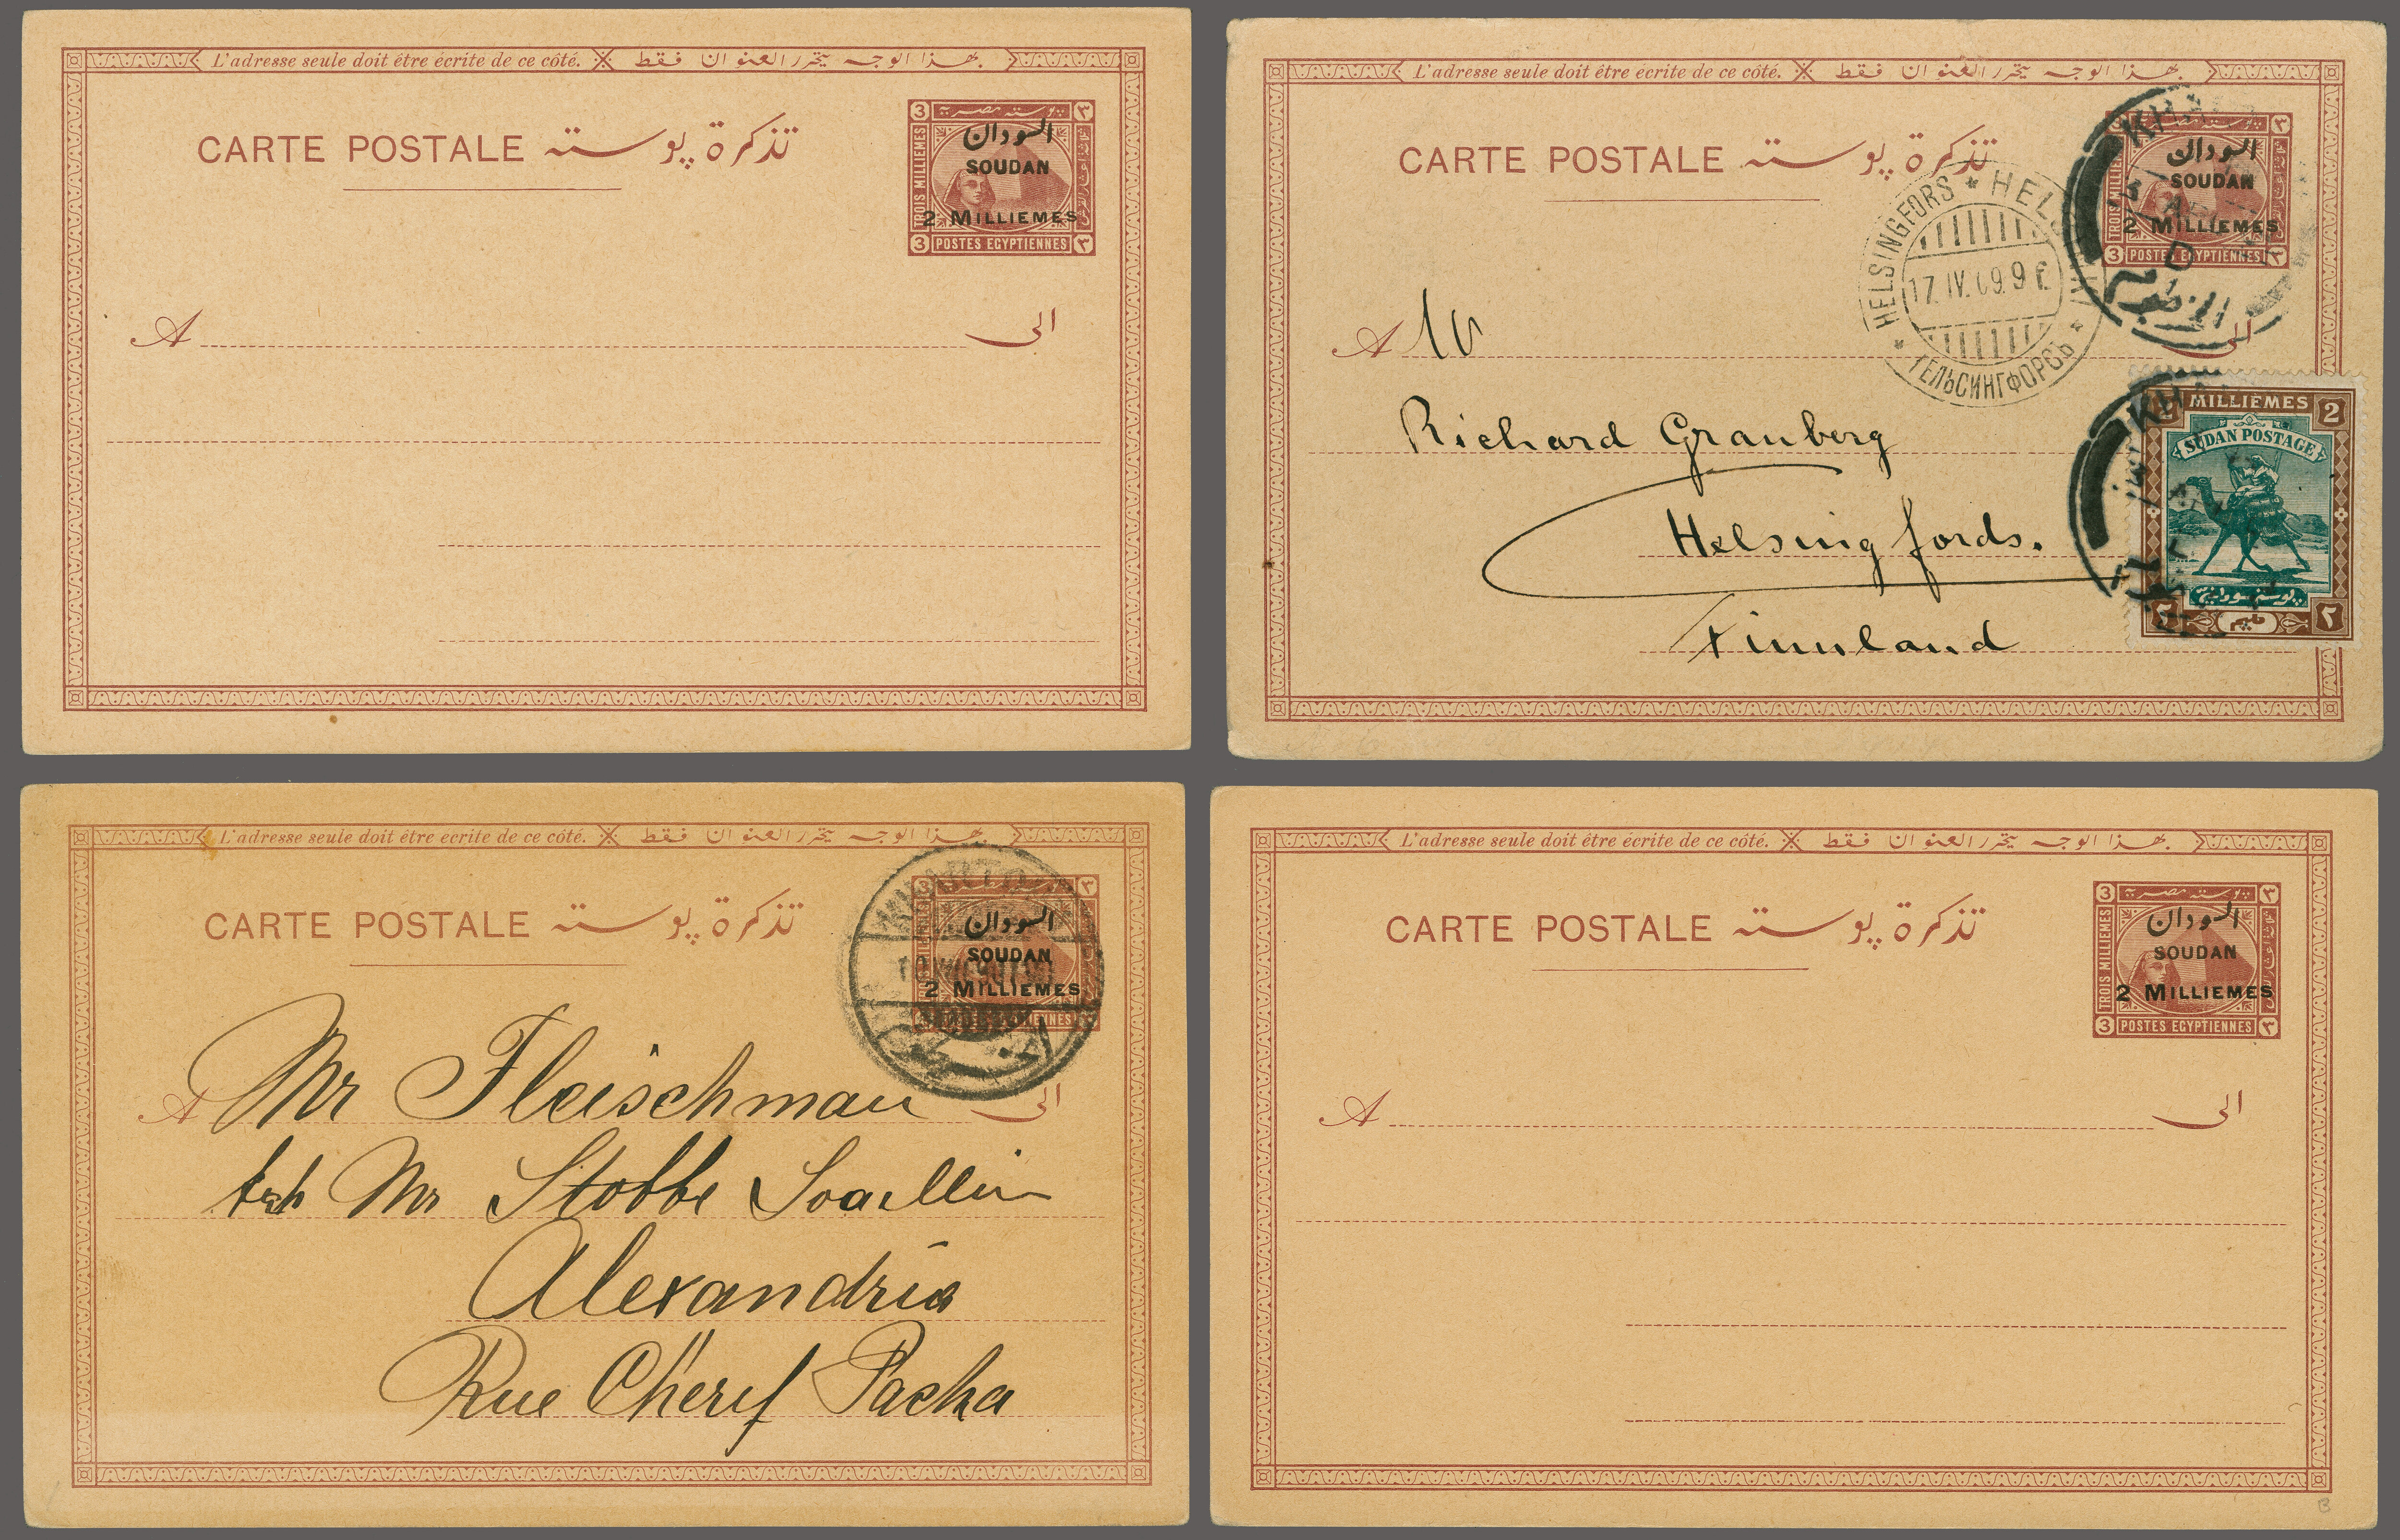 L'adresse seule doit être écrite de ce côté. بهذا الوجه يحرر العنوان فقط
CARTE POSTALE تذكرة پوسته
3 پوسته مصرية ٣
TROIS MILLIEMES
السودان
SOUDAN
2 MILLIEMES
3 POSTES EGYPTIENNES ٣
A الى
L'adresse seule doit être écrite de ce côté. بهذا الوجه يحرر العنوان فقط
CARTE POSTALE تذكرة پوسته
KHAR
٣
السودان
SOUDAN
2 MILLIEMES
D
3 POSTES EGYPTIENNES ٣
الخرطوم
HELSINGFORS * HELSINGFORS
17.IV.09.9
ГЕЛЬСИНГФОРСЪ
A الى
Richard Granberg
Helsingfords.
Finnland
KHAR
MILLIÈMES 2
SUDAN POSTAGE
پوسته سودانية
٢ مليم ٢
L'adresse seule doit être écrite de ce côté. بهذا الوجه يحرر العنوان فقط
CARTE POSTALE تذكرة پوسته
KHARTOUM
3 ٣
السودان
SOUDAN
2 MILLIEMES
A الى
Mr Fleischman
Mr Stobbe
Alexandria
Rue Cherif Pacha
L'adresse seule doit être écrite de ce côté. بهذا الوجه يحرر العنوان فقط
CARTE POSTALE تذكرة پوسته
3 پوسته مصرية ٣
TROIS MILLIEMES
السودان
SOUDAN
2 MILLIEMES
3 POSTES EGYPTIENNES ٣
A الى
B